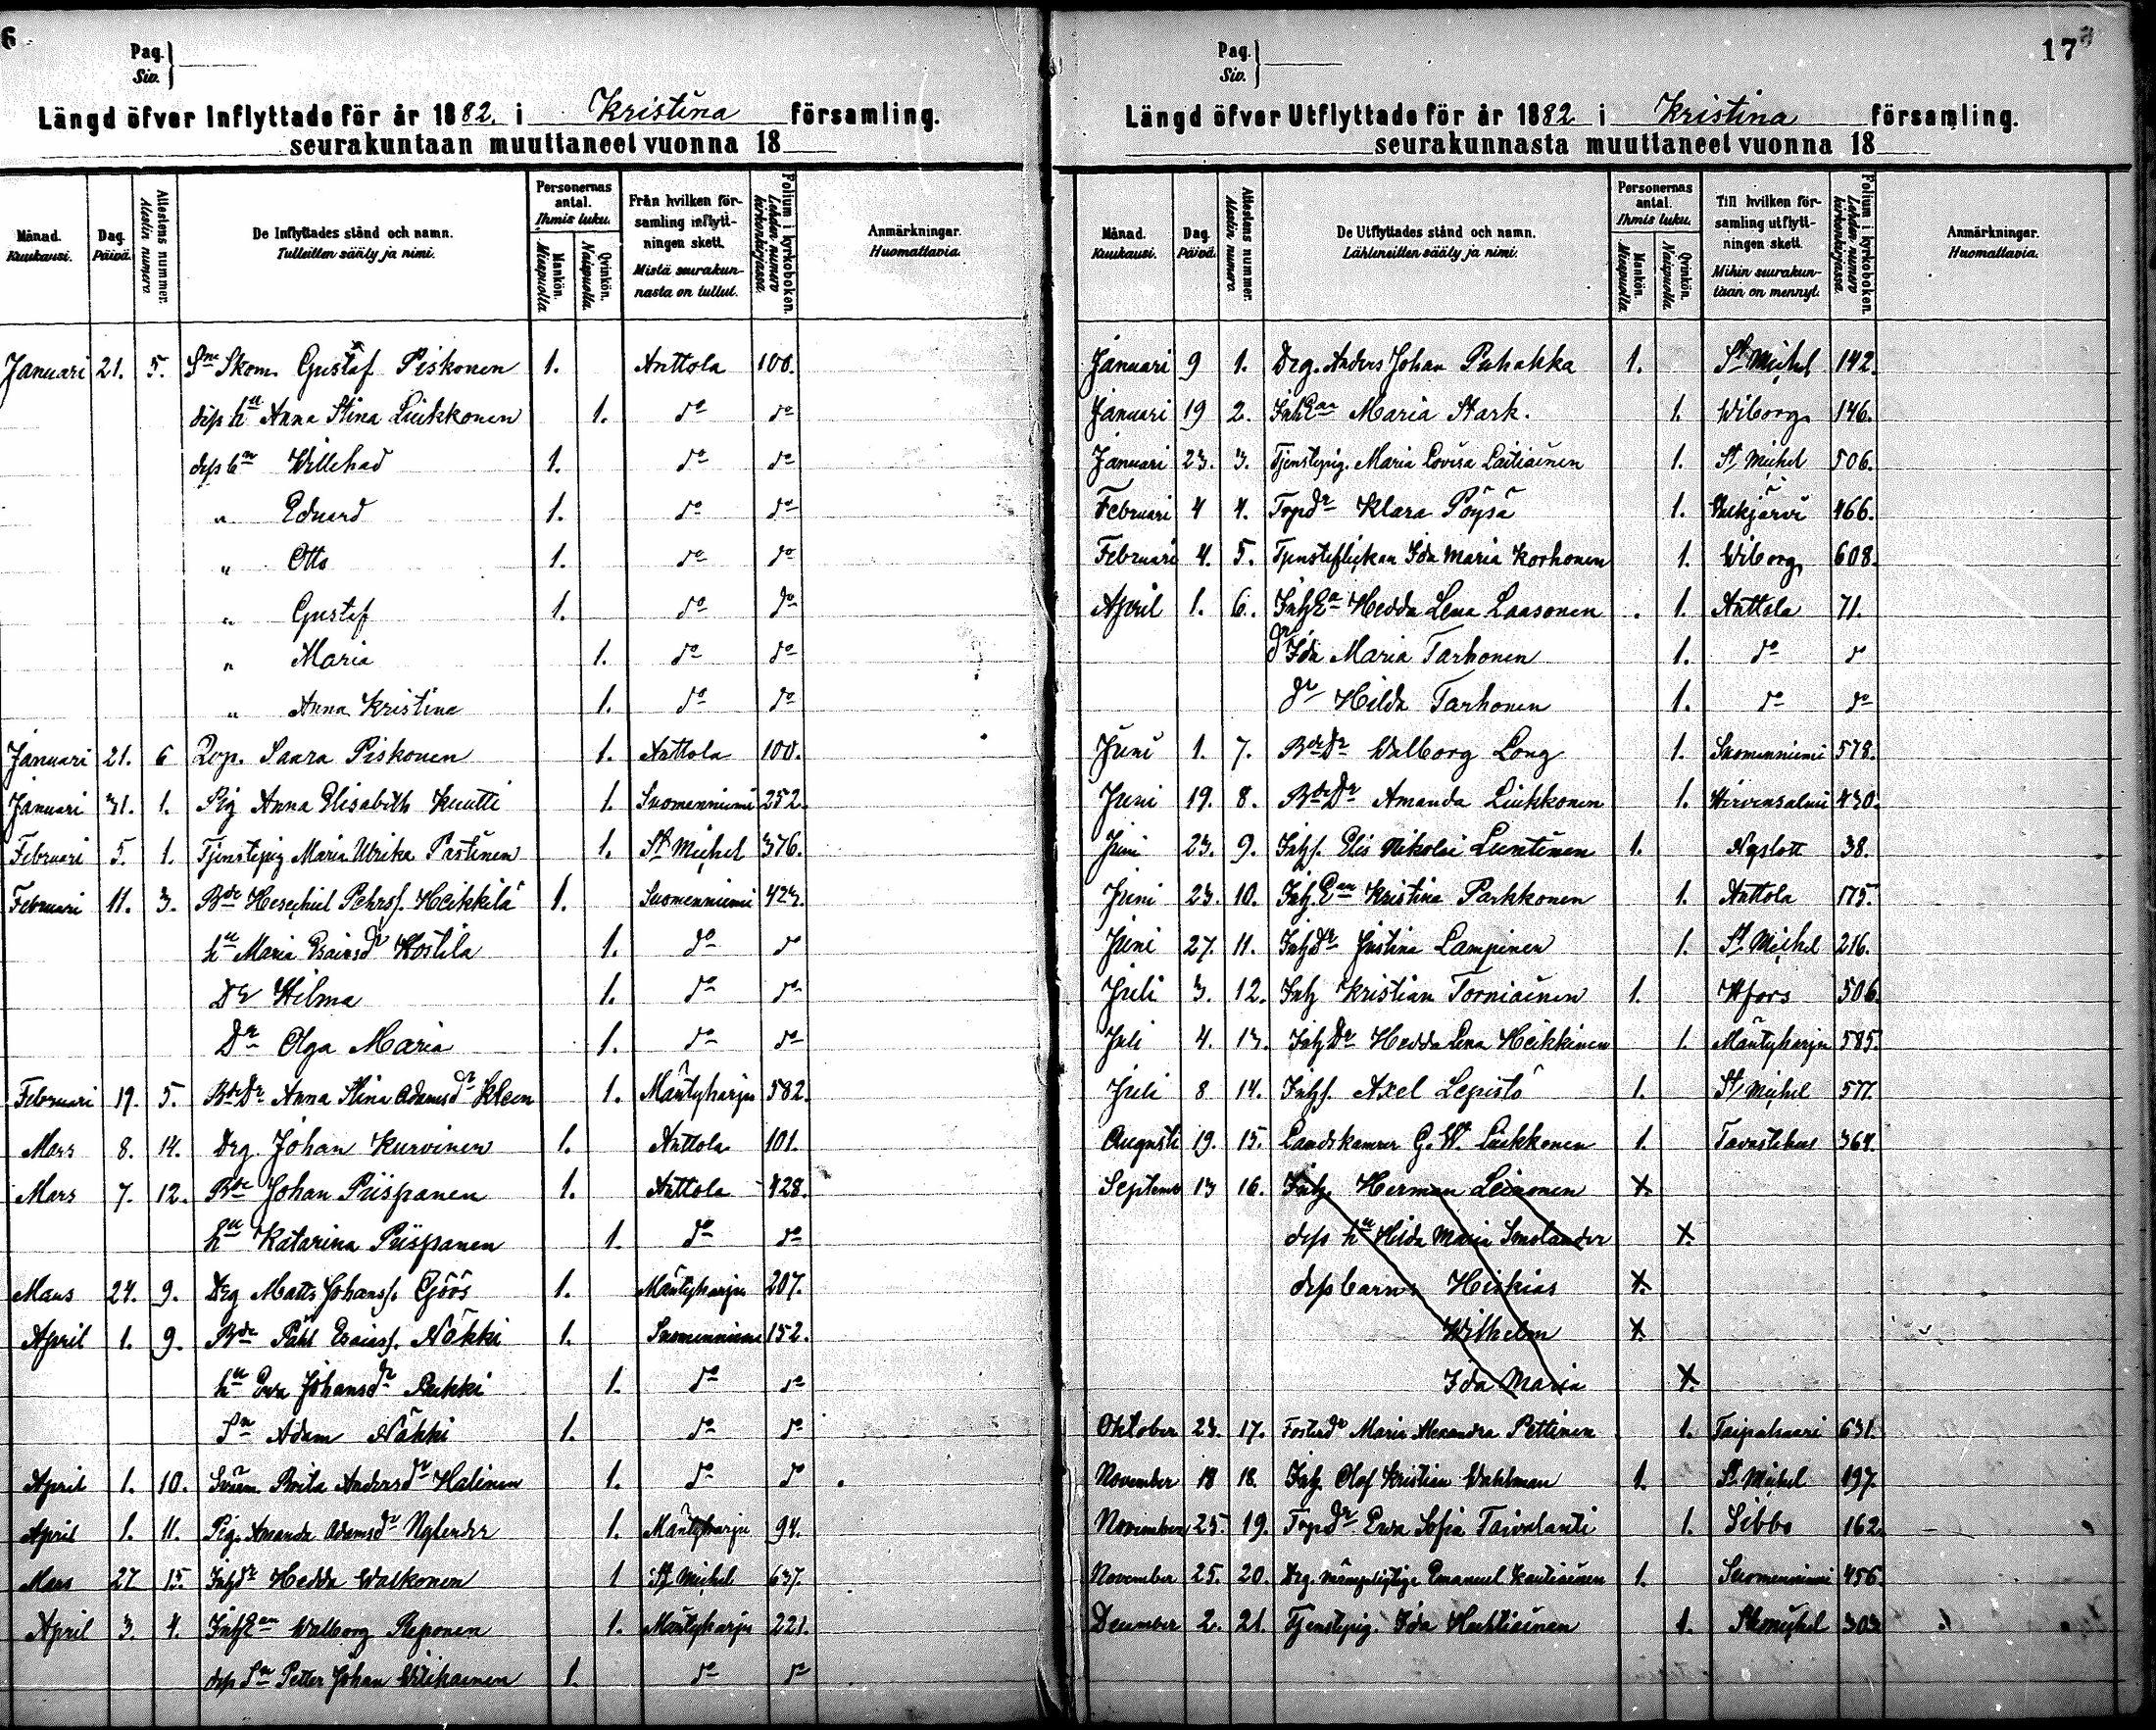 6
Pag.
Siv.
Längd öfver Inflyttade för år 1882. i Kristina församling.
seurakuntaan muuttaneet vuonna 18
Månad. Kuukausi.
Dag. Päivä.
Attestens nummer. Alestin numero.
De Inflyttades stånd och namn. Tulleitten sääty ja nimi.
Personernas antal. Ihmis luku.
Mankön. Miespuolia.
Qvinkön. Naispuolia.
Från hvilken församling inflyttningen skett. Mistä seurakunnasta on tullut.
Folium i kyrkoboken. Lehden numero kirkonkirjassa.
Anmärkningar. Huomattavia.
Januari 21. 5. Sne Skom. Gustaf Piskonen 1. Anttola 100.
dess hu Anna Stina Liukkonen 1. do do
dess bn Willehad 1. do do
" Eduard 1. do do
" Otto 1. do do
" Gustaf 1. do do
" Maria 1. do do
" Anna Kristina 1. do do
Januari 21. 6 Qvp. Saara Piskonen 1. Anttola 100.
Januari 31. 1. Pig Anna Elisabeth Kuutti 1. Suomenniemi 252.
Februari 5. 1. Tjenstepig Maria Ulrika Pastinen 1. St Michel 376.
Februari 11. 3. Bde Hesechiel Pehrss. Heikkilä 1. Suomenniemi 423.
hu Maria Esaiasdr Kostila 1. do do
Dr Hilma 1. do do
Dr Olga Maria 1. do do
Februari 19. 5. BdeDr Anna Stina Adamsdr Klem 1. Mäntyharju 582.
Mars 8. 14. Drg. Johan Kurvinen 1. Anttola 101.
Mars 7. 12. Bde Johan Piispanen 1. Anttola 428.
hu Katarina Piispanen 1. do do
Mars 24. 9. Drg Matts Johanss. Göös 1. Mäntyharju 207.
April 1. 9. Bde Påhl Esaiass. Näkki 1. Suomenniemi 152.
hu Eva Johansdr Pukki 1. do do
Sn Adam Näkki 1. do do
April 1. 10. Brita Andersdr Halinen 1. do do
April 1. 11. Pig. Amanda Adamsdr Nylander 1. Mäntyharju 94.
Mars 27 15. Inhdr Hedda Walkonen 1 St Michel 637.
April 3. 4. InhEan Walborg Reponen 1. Mäntyharju 221.
dess Sn Petter Johan Wilikainen 1. do do
17
Pag.
Siv.
Längd öfver Utflyttade för år 1882 i Kristina församling.
seurakunnasta muuttaneet vuonna 18
Månad. Kuukausi.
Dag. Päivä.
Attestens nummer. Alestin numero.
De Utflyttades stånd och namn. Lähteneitten sääty ja nimi.
Personernas antal. Ihmis luku.
Mankön. Miespuolia.
Qvinkön. Naispuolia.
Till hvilken församling utflyttningen skett. Mihin seurakuntaan on mennyt.
Folium i kyrkoboken. Lehden numero kirkonkirjassa.
Anmärkningar. Huomattavia.
Januari 9 1. Drg. Anders Johan Puhakka 1. St Michel 142.
Januari 19 2. InhEan Maria Stark. 1. Wiborg 146.
Januari 23. 3. Tjenstepig. Maria Lovisa Laitiainen 1. St Michel 506.
Februari 4 4. Torpdr Klara Pöysä 1. 466.
Februari 4. 5. Tjensteflickan Ida Maria Korhonen 1. Wiborg 608.
April 1. 6. InhEa Hedda Lena Laasonen 1. Anttola 71.
dr Ida Maria Tarhonen 1. do do
dr Hilda Tarhonen 1. do do
Juni 1. 7. BdeDr Walborg Long 1. Suomenniemi 578.
Juni 19. 8. BdeDr Amanda Liukkonen 1. Hirvensalmi 430.
Juni 23. 9. Inhs. Elis Nikolai Luntinen 1. Nyslott 38.
Juni 23. 10. InhEan Kristina Parkkonen 1. Anttola 175.
Juni 27. 11. Inhdr Justina Lampinen 1. St Michel 216.
Juli 3. 12. Inh Kristian Torniainen 1. Hfors 506.
Juli 4. 13. InhDr Hedda Lena Heikkinen 1. Mäntyharju 585.
Juli 8 14. Inhs. Axel Lepistö 1. St Michel 577.
Augusti 19. 15. Landskamrer G. W. Liukkonen 1. Tavastehus 364.
September 13 16. Inh. Herman Leinonen 1.
dess hu Hilda Maria Smolander 1.
dess barn: Hiskias 1.
Wilhelm 1.
Ida Maria 1.
Oktober 23. 17. Fosterdr Maria Alexandra Pettinen 1. Taipalsaari 631.
November 18 18. Inh. Olof Kristian Wahlman 1. St Michel 197.
November 25. 19. Torpdr Ewa Sofia Taivalanti 1. Sibbo 162.
November 25. 20. Drg. värnepligtige Emanuel Kautiainen 1. Suomenniemi 456.
December 2. 21. Tjenstepig. Ida Huhtiainen 1. St Michel 303